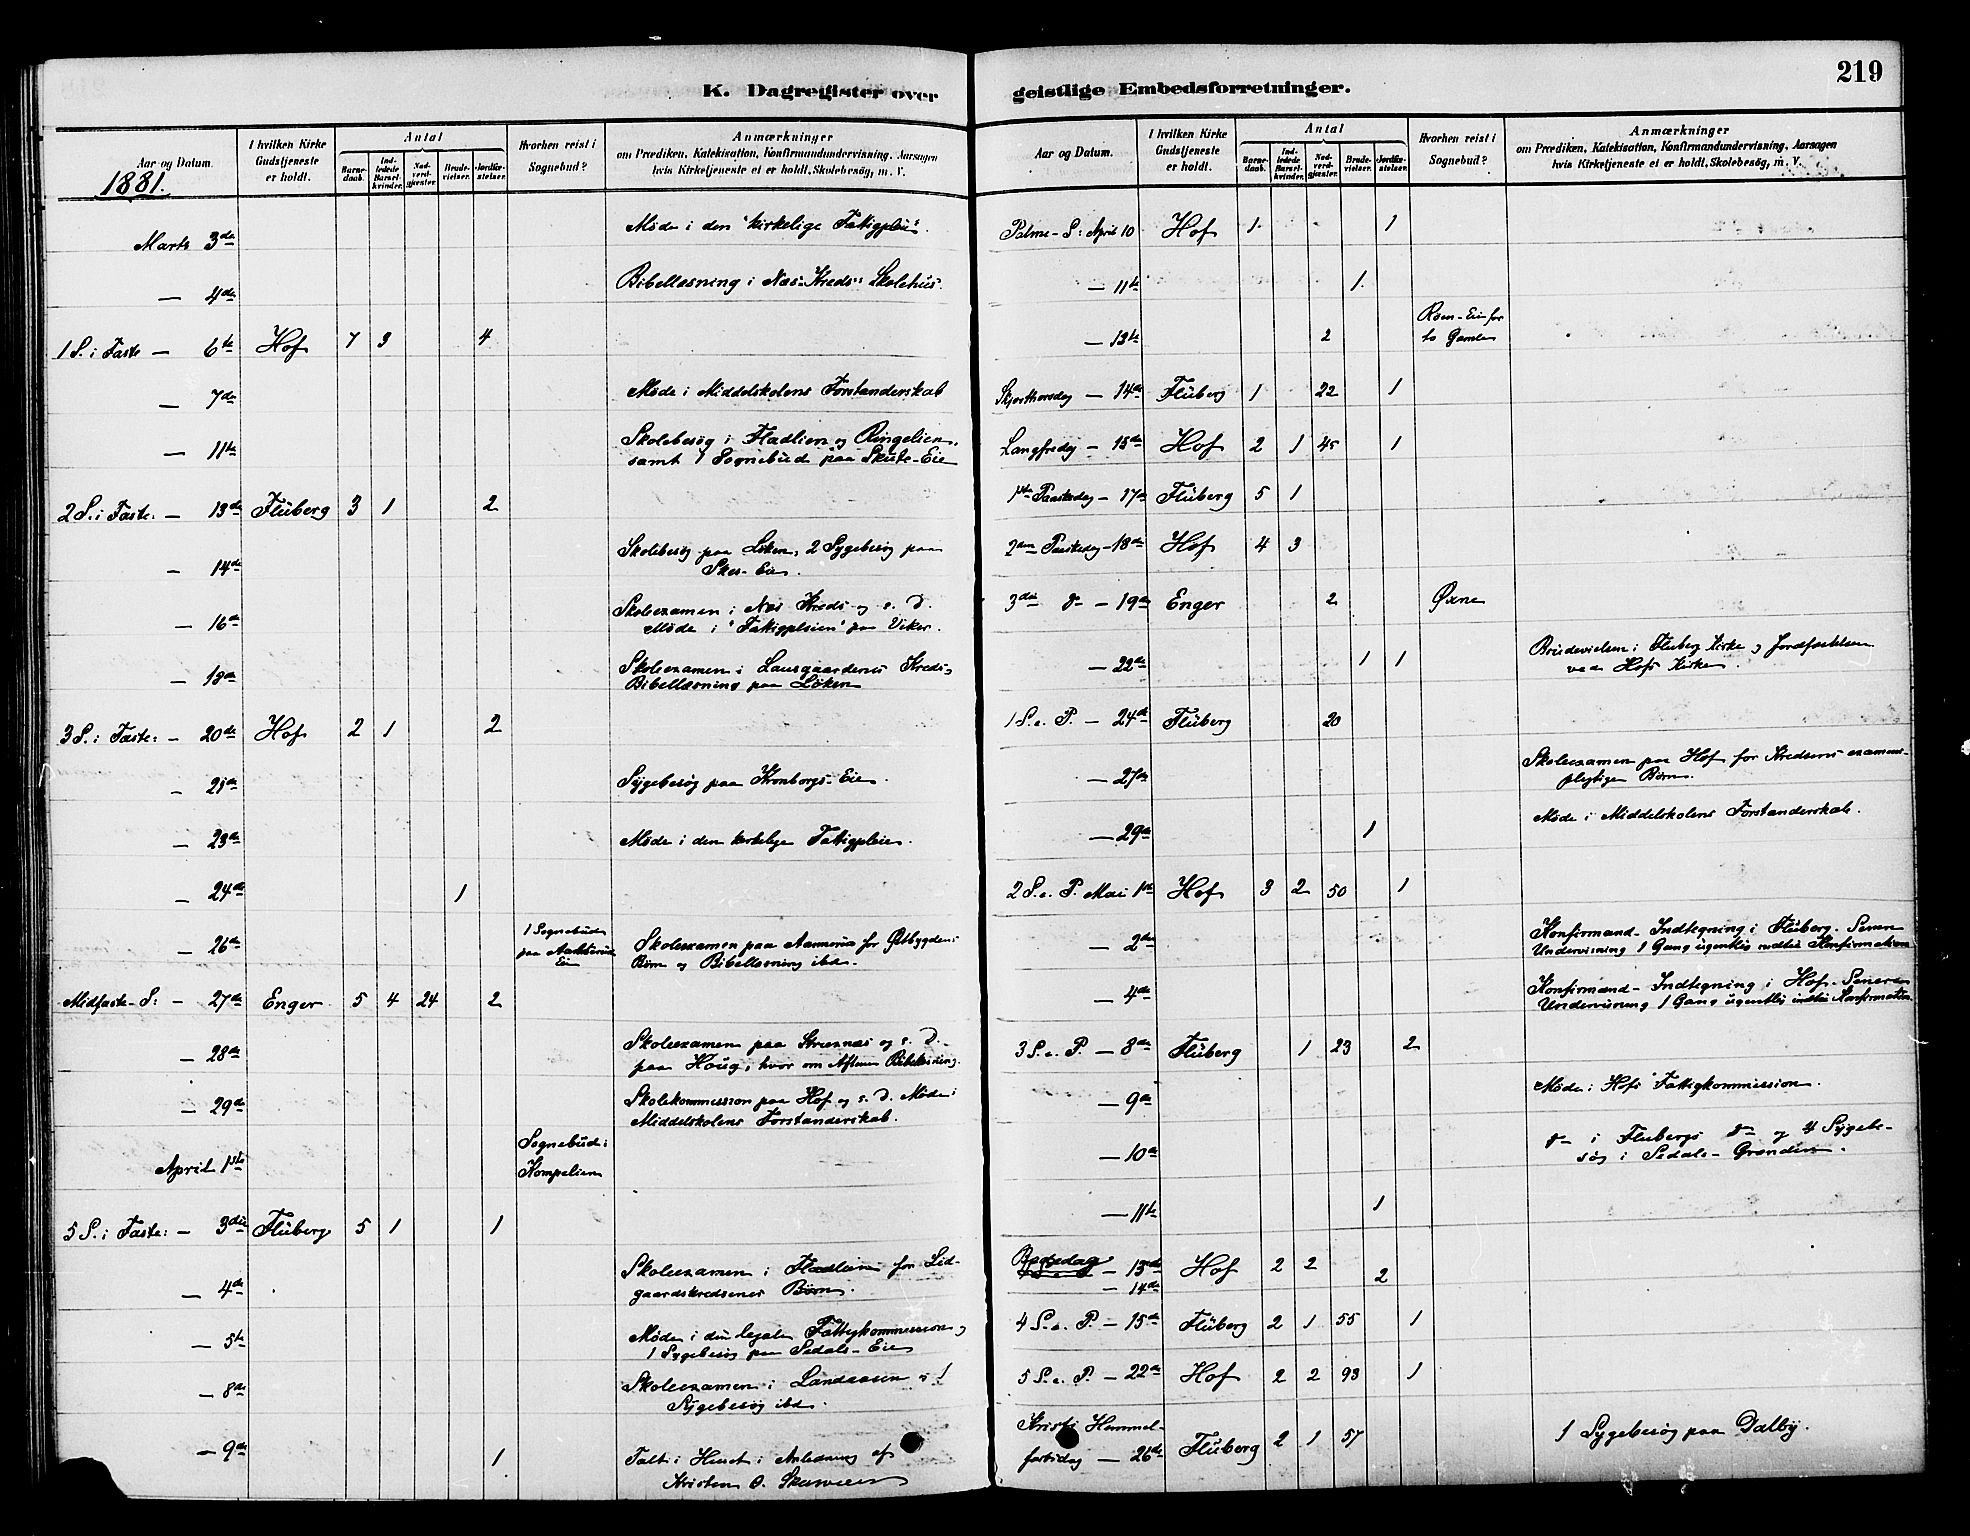 219
K. Dagregister over geistlige Embedsforretninger.
Aar og Datum.
I hvilken Kirke Gudstjeneste er holdt.
Antal
Barne-daab.
Ind-ledede Barsel-kvinder.
Nad-verd-gjæster.
Brude-vielser.
Jordfæ-stelser.
Hvorhen reist i Sognebud?
Anmærkninger
om Prædiken, Katekisation, Konfirmandundervisning, Aarsagen
hvis Kirketjeneste ei er holdt, Skolebesøg, m. V.
1881.
Marts 3de Møde i den "kirkelige Fattigpleie".
— 4de Bibellæsning i Næs-Kreds's Skolehus.
1 S. i Faste — 6te Hof 7 3 4
— 7de Møde i Middelskolens Forstanderskab
— 11te Skolebesøg i Fladlien og Ringelien,
samt 1 Sognebud paa Skute-Eie
2 S. i Faste: — 13de Fluberg 3 1 2
— 14de Skolebesøg paa Løken, 2 Sygebesøg paa
Skøs-Eie.
— 16de Skoleexamen i Næs Kreds og s. D.
Møde i "Fattigpleien" paa Viker.
— 18de Skoleexamen i Kreds,
Bibellæsning paa Løken
3 S. i Faste: — 20de Hof 2 1 2
— 21de Sygebesøg paa Kronborgs-Eie.
— 23de Møde i den kirkelige Fattigpleie.
— 24de 1
— 26de 1 Sognebud paa Eie Skoleexamen paa for Østbygdens
Børn og Bibellæsning ibd.
Midfaste-S: — 27de Enger 5 4 24 2
— 28de Skoleexamen paa og s. D.
paa Houg, hvor om Aftenen Bibellæsning.
— 29de Skolekommission paa Hof og s. D. Møde i
Middelskolens Forstanderskab.
April 1ste Sognebud i Kompelien
5 S. i Faste: — 3die Fluberg 5 1 1
— 4de Skoleexamen i Fladlien for Lid-
gaardskredsenes Børn.
— 5te Møde i den legale Fattigkommission og
1 Sygebesøg paa Sedals-Eie
— 8de Skoleexamen i Landaasen og 1
Sygebesøg ibd.
— 9de 1 Talt i Huset i Anledning af
Kristen O.
Aar og Datum.
I hvilken Kirke Gudstjeneste er holdt.
Antal
Barne-daab.
Ind-ledede Barsel-kvinder.
Nad-verd-gjæster.
Brude-vielser.
Jordfæ-stelser.
Hvorhen reist i Sognebud?
Anmærkninger
om Prædiken, Katekisation, Konfirmandundervisning, Aarsagen
hvis Kirketjeneste ei er holdt, Skolebesøg, m. V.
Palme-S: April 10 Hof 1 1
— 11te 1
— 13de 2 Røen-Eie for to Gamle
Skjærthorsdag — 14de Fluberg 1 22 1
Langfredag — 15de Hof 2 1 45 1
1ste Paaskedag — 17de Fluberg 5 1
2den Paaskedag — 18de Hof 4 3
3die do — 19de Enger 2 Øxne
— 22de 1 1 Brudevielsen i Fluberg Kirke og Jordfæstelsen
ved Hofs Kirke.
1 S. e. P. — 24de Fluberg 20
— 27de Skoleexamen paa Hof for Kredsens examens-
pligtige Børn.
— 29de 1 Møde i Middelskolens Forstanderskab.
2 S. e. P. Mai 1ste Hof 3 2 50 1
— 2den Konfirmand-Indtegning i Fluberg. Senere
Undervisning 1 Gang ugentlig indtil Konfirmationen
— 4de Konfirmand-Indtegning i Hof. Senere
Undervisning 1 Gang ugentlig indtil Konfirmationen
3 S. e. P. — 8de Fluberg 1 23 2
— 9de Møde i Hofs Fattigkommission.
— 10de do i Flubergs do og 4 Sygebe-
søg i Sedals-Grenden.
— 11te 1
Bededag — 13de Hof 2 2
— 14de 2
4 S. e. P. — 15de Fluberg 2 1 55 1
5 S. e. P. — 22de Hof 2 2 93 1
Kristi Himmel-
fartsdag — 26de Fluberg 2 1 57 1 Sygebesøg paa Dalby.